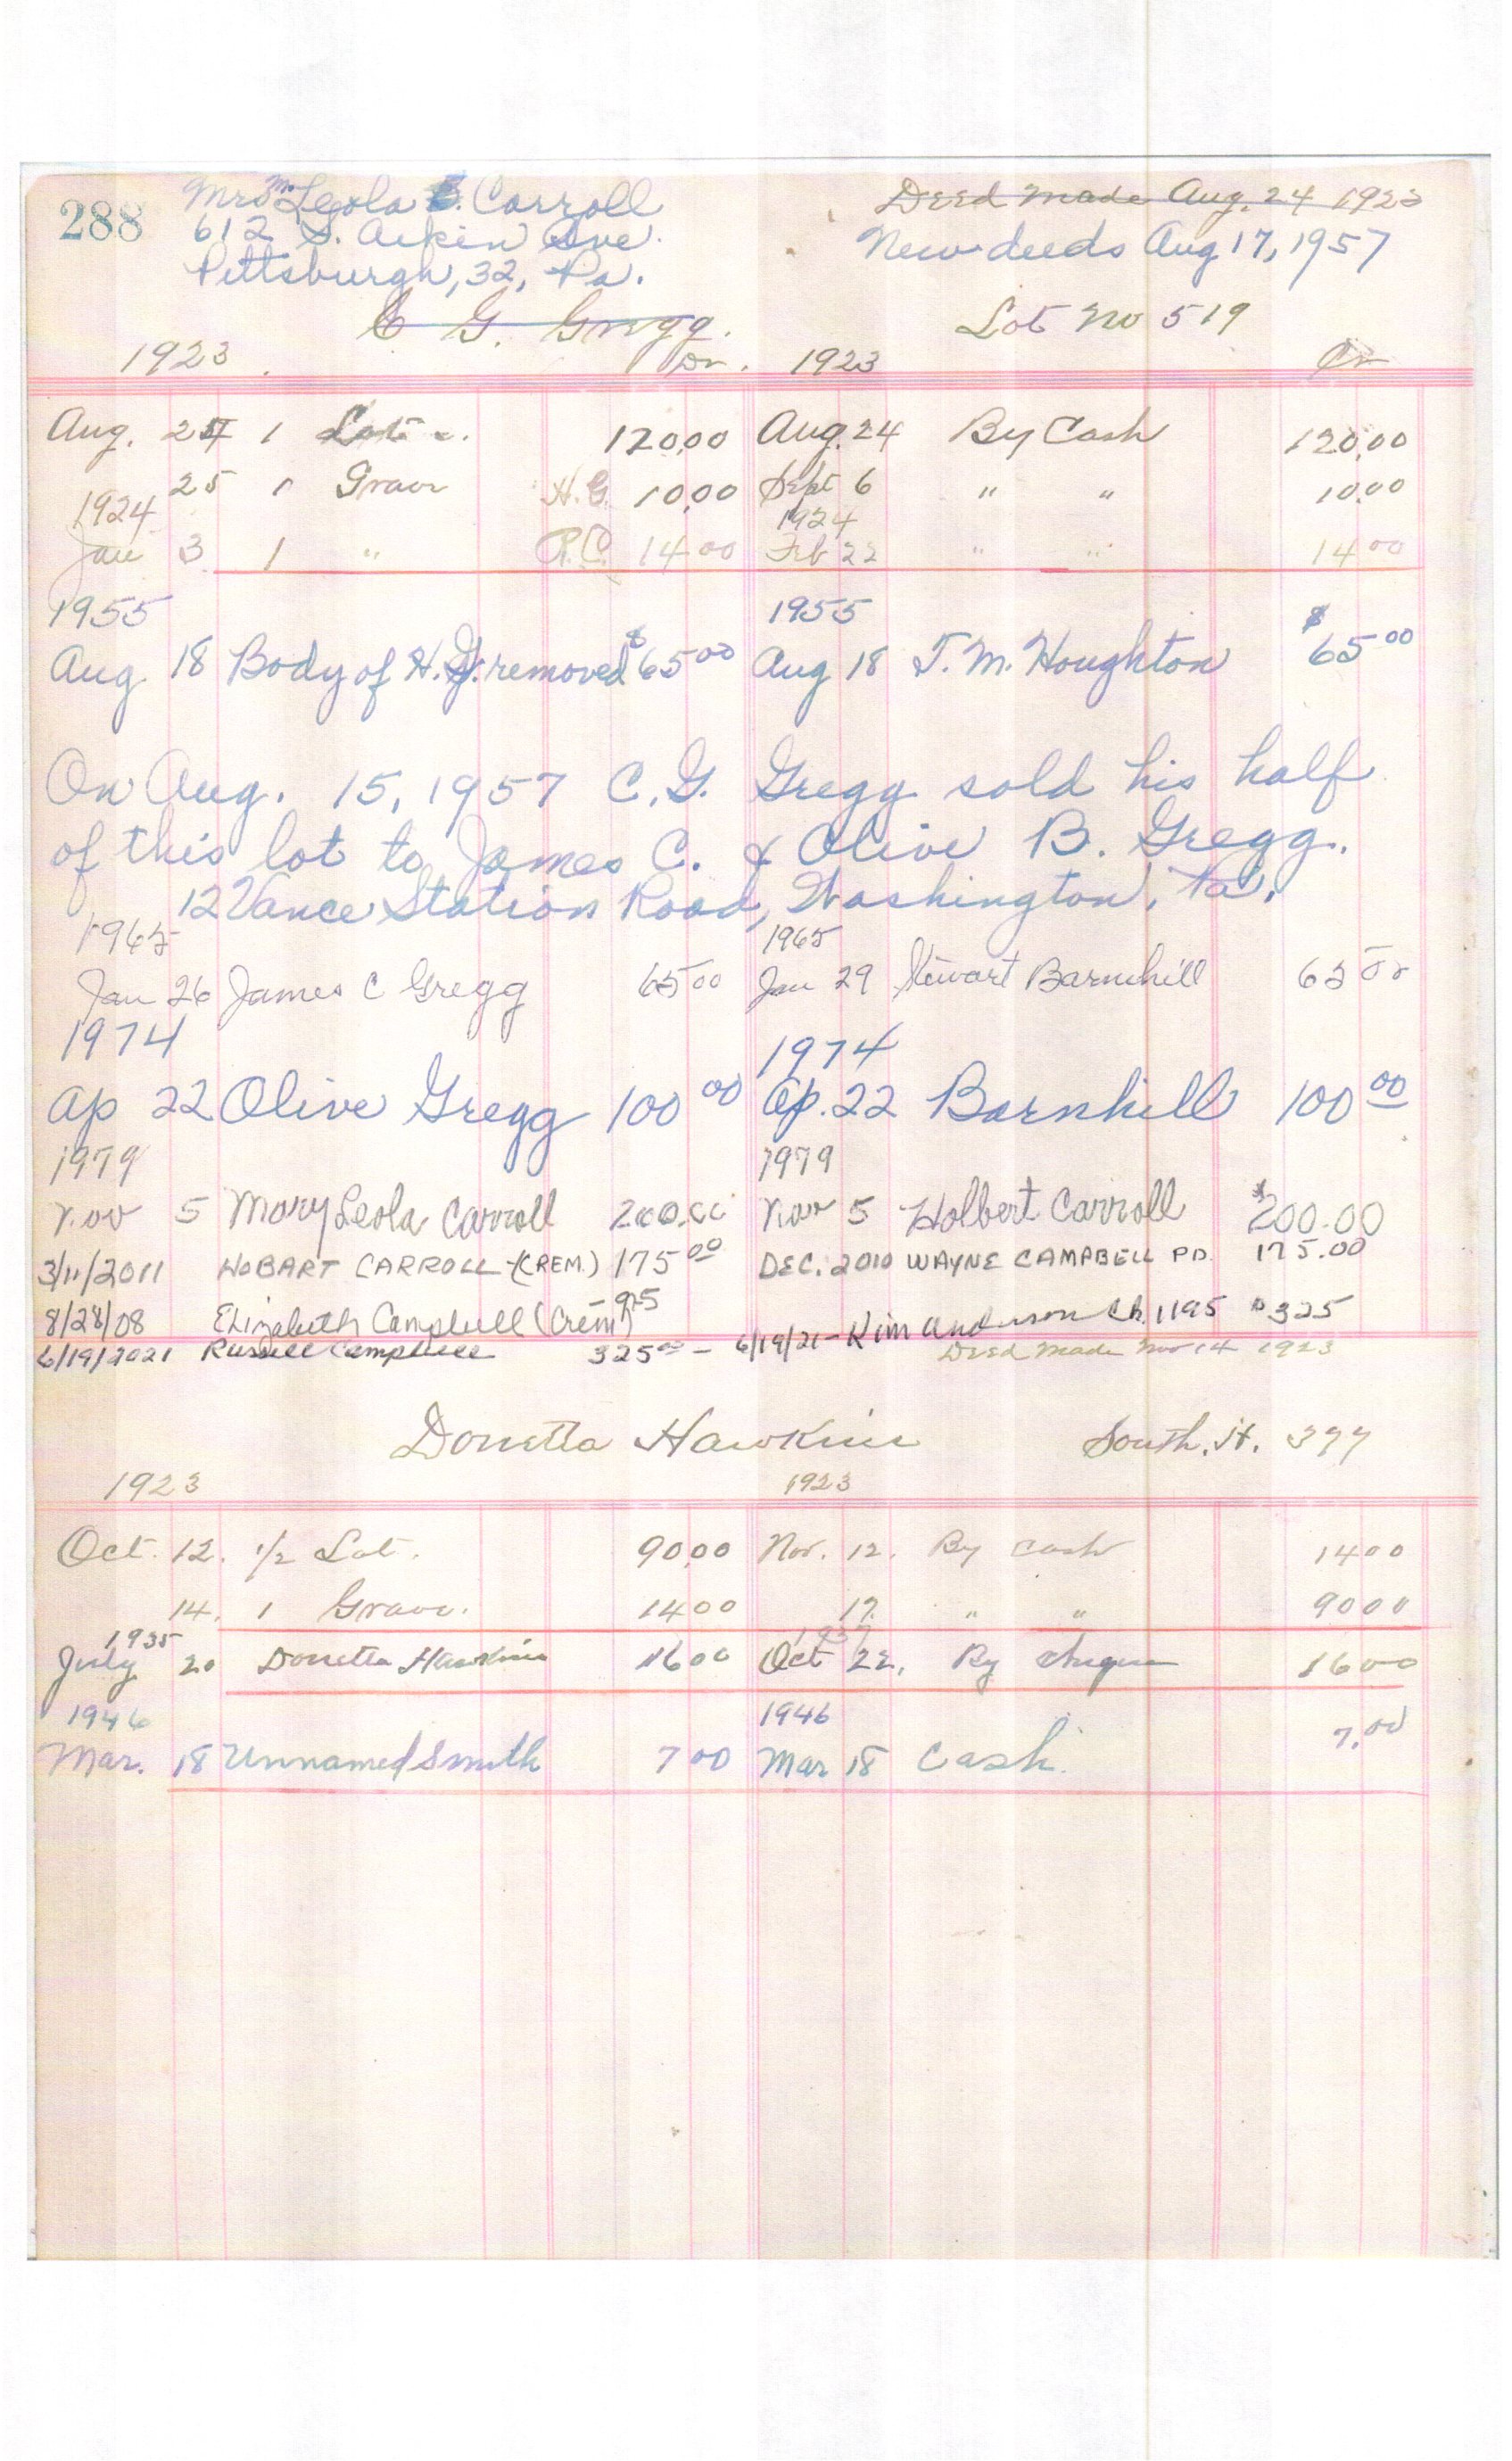 288
Mrs. M. Leola B. Carroll
612 S. Aiken Ave.
Pittsburgh, 32, Pa.
Deed made Aug. 24 1923
New deeds Aug 17, 1957
C G. Gregg.
Lot No 519
1923 Dr. 1923 Cr
Aug. 24 1 Lot 120.00 Aug. 24 By Cash 120.00
25 1 Grave H.G. 10.00 Sept 6 " " 10.00
1924 1924
Jan 3 1 " R.C. 14 00 Feb 22 " " 14 00
1955 1955
Aug 18 Body of H.G. removed $65 00 Aug 18 T. M. Houghton $65 00
On Aug. 15, 1957 C. G. Gregg sold his half
of this lot to James C. & Olive B. Gregg.
12 Vance Station Road, Washington, Pa.
1965 1965
Jan 26 James C Gregg 65 00 Jan 29 Stewart Barnhill 65 00
1974 1974
Ap 22 Olive Gregg 100 00 Ap. 22 Barnhill 100 00
1979 1979
Nov 5 Mary Leola Carroll 200.00 Nov 5 Holbert Carroll $200.00
3/11/2011 HOBART CARROLL - (CREM.) 175 00 DEC. 2010 WAYNE CAMPBELL PD. 175.00
8/28/08 Elizabeth Campbell (Crem)
6/19/2021 Russell Campbell 325 00 - 6/19/21 - Kim Anderson Ch. 1195 $325
Deed Made Nov 14 1923
Donetta Hawkins South. H. 377
1923 1923
Oct. 12. 1/2 Lot. 90.00 Nov. 12. By cash 14 00
14. 1 Grave. 14 00 17. " " 90 00
1935 1937
July 20 Donetta Hawkins 16 00 Oct 22, By 16 00
1946 1946
Mar. 18 Unnamed Smith 7 00 Mar 18 Cash. 7.00